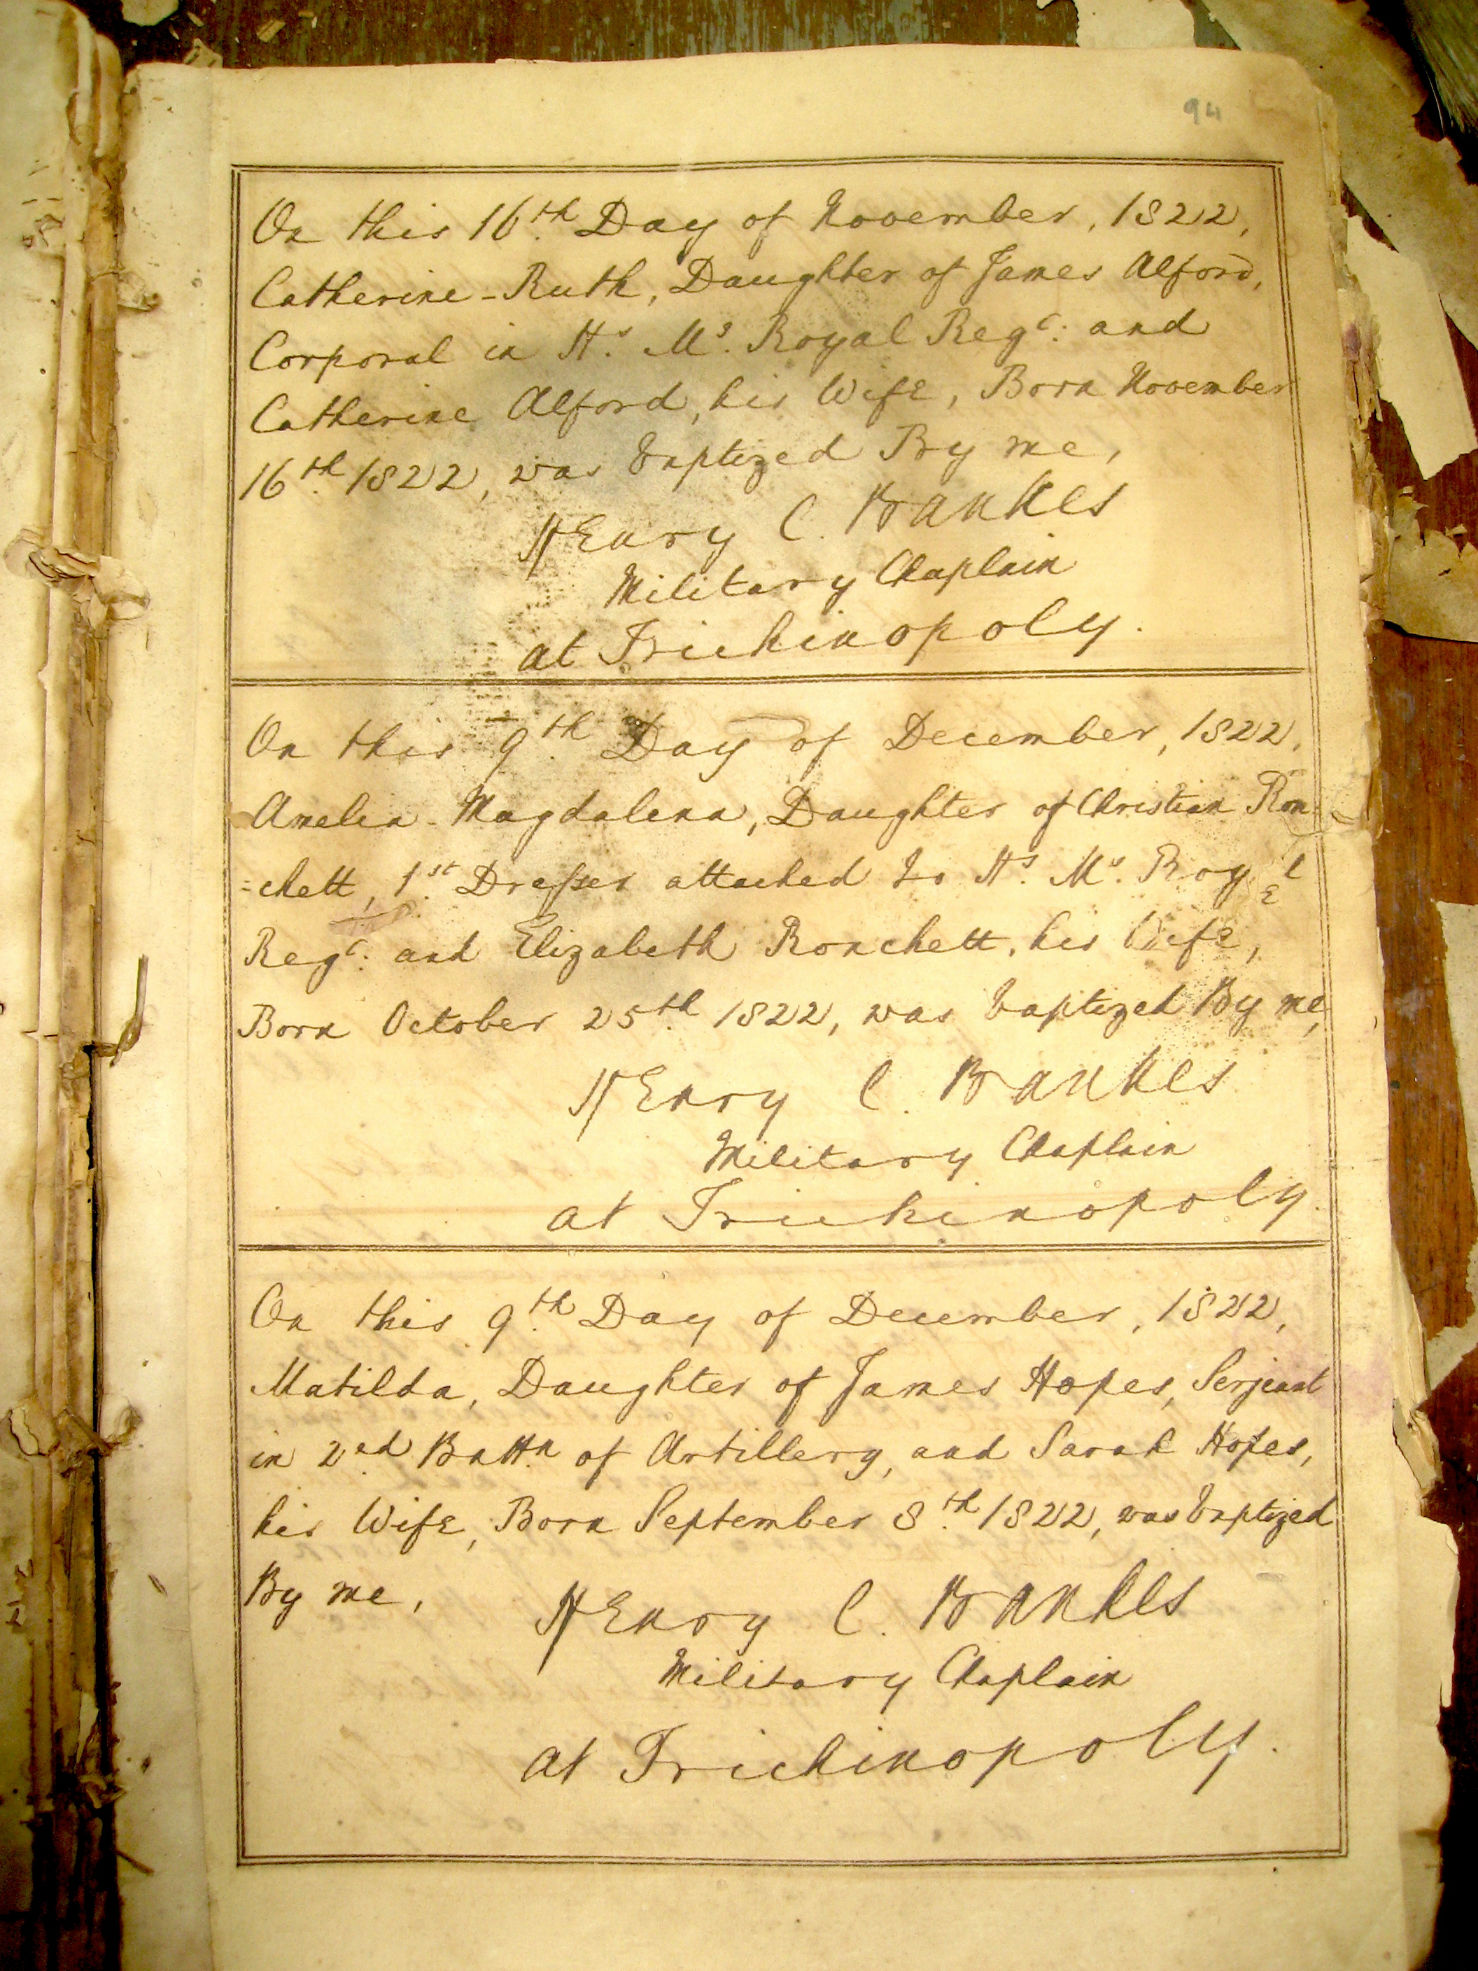 94
On this 16th Day of November, 1822,
Catherine-Ruth, Daughter of James Alford,
Corporal in Hs. Ms. Royal Regt: and
Catherine Alford, his Wife, Born November
16th 1822, was baptized By me,
Henry C. Bankes
Military Chaplain
at Trichinopoly.
On this 9th Day of December, 1822,
Amelia-Magdalena, Daughter of Christian Ron-
=chett, 1st Dresser attached to Hs. Ms. Roy l
Regt: and Elizabeth Ronchett, his Wife,
Born October 25th 1822, was baptized By me,
Henry C. Bankes
Military Chaplain
at Trichinopoly.
On this 9th Day of December, 1822,
Matilda, Daughter of James Hopes, Serjeant
in 2nd Battn of Artillery, and Sarah Hopes,
his Wife, Born September 8th 1822, was baptized
By me,
Henry C. Bankes
Military Chaplain
at Trichinopoly.